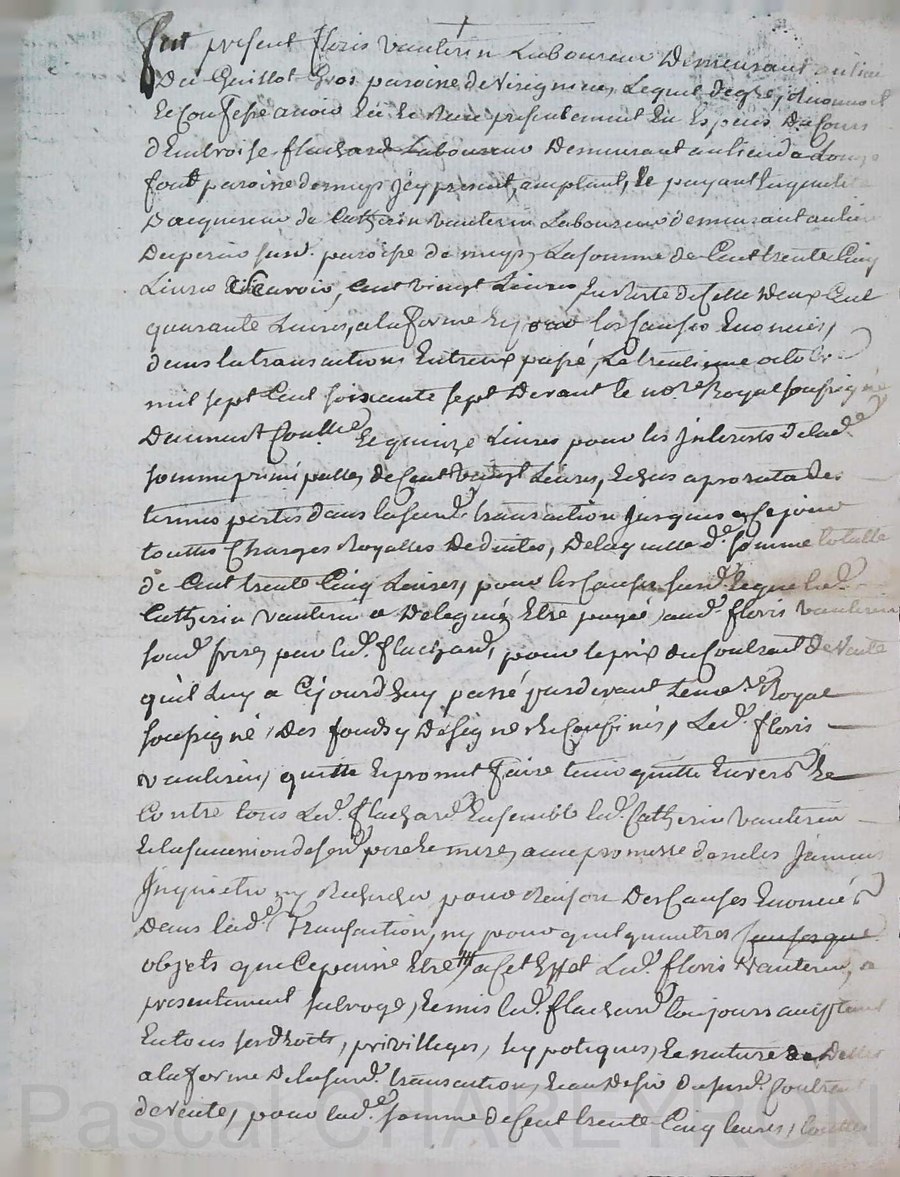 Fut présent floris vauterin Laboureur Demeurant au lieu
Du Guillot Gros paroisse de Virigneu, Lequel de gré, a avoué et
Et Confessé avoir Eu Et Receu présentement En Especes Du Cours
d'Embroise flachard Laboureur Demeurant au lieu de
font paroisse de meys jcy present, acceptant, Et payant En qualité
D'acquereur de Catherin vauterin Laboureur demeurant au lieu
Du perier susd. paroisse de meys, La somme de Cent trente Cinq
Livres Scavoir, Cent vingt Livres En Reste de Celle Deux Cent
quarante Livres, a la forme Et pour les Causes Enoncées,
dans la transactions Entreux passé, Le treizieme octobre
mil sept Cent soixante sept Devant le no.re Royal soussigné
Deument Conttr.e Et quinze Livres pour les jnterests de lad.e
somme principalle, de Cent vingt Livres, Echus a prorata des
termes portés dans la susd.e transaction jusques a Ce jour
touttes Charges Royalles Deduites, De laquelle d.e somme totalle
de Cent trente Cinq Livres, pour les Causes susd. Lequel led.
Catherin vauterin a Delegué Etre payé, aud. floris vauterin
sond. frere, par led. flachard, pour le prix du Contract De Vente
qu'il Luy a Cejourd'huy passé pardevant Le no.re Royal
soussigné, Des fonds y Désigné et Confinés, Led. floris
vauterin, quitte Et promet faire tenir quitte Envers Et
Contre tous Led. flachard Ensemble led. Catherin vauterin
Et la succession de ses pere Et mere, avec promesse de ne les Jamais
Jnquieter ny Rechercher pour Raison Des Causes Enoncées
Dans lad.e Transaction, ny pour quelqu'autres
objets que Ce puisse Etre, a Cet Effet Led. floris Vauterin, a
presentement subrogé, Et mis led. flachard toujours acceptant
En tous ses droits, privilleges, hypoteques, Et nature de Dettes
a la forme De la susd. transaction, Et au Desir dususd. Contract
de vente, pour lad.e somme de Cent trente Cinq livres, touttes
Pascal CHAREYRON